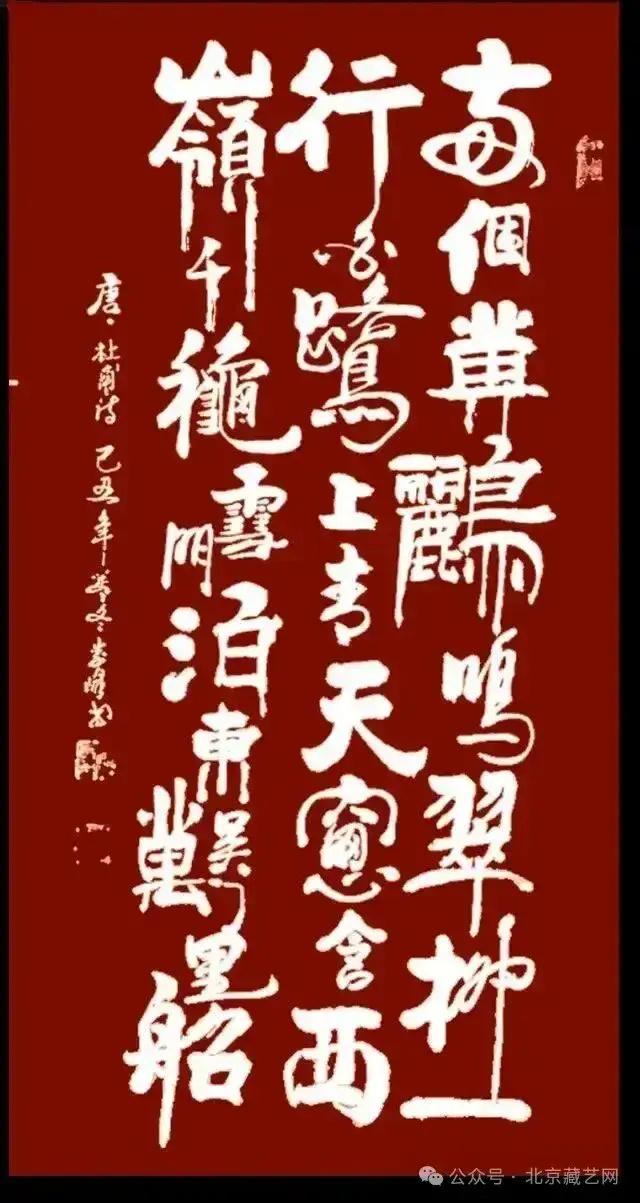 两個黃鸝鳴翠柳一
行白鷺上青天窻含西
嶺千穐雪門泊東吳萬里船
唐、杜甫诗 己丑年冬
公众号 · 北京藏艺网